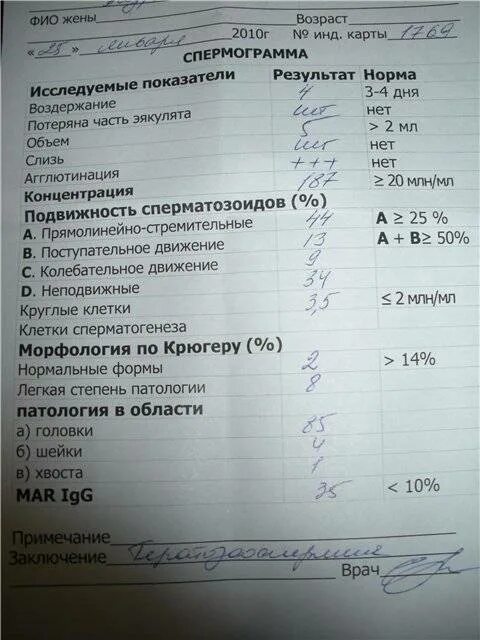 ФИО жены Возраст
« 25 » января 2010г № инд. карты 1769
СПЕРМОГРАММА
Исследуемые показатели Результат Норма
Воздержание 4 3-4 дня
Потеряна часть эякулята нет нет
Объем 5 > 2 мл
Слизь нет нет
Агглютинация +++ нет
Концентрация 187 ≥ 20 млн/мл
Подвижность сперматозоидов (%)
A. Прямолинейно-стремительные 44 A ≥ 25 %
B. Поступательное движение 13 A + B≥ 50%
C. Колебательное движение 9
D. Неподвижные 34
Круглые клетки 3,5 ≤ 2 млн/мл
Клетки сперматогенеза
Морфология по Крюгеру (%)
Нормальные формы 2 > 14%
Легкая степень патологии 8
патология в области
а) головки 85
б) шейки 4
в) хвоста 1
MAR IgG 35 < 10%
Примечание
Заключение Тератозооспермия
Врач